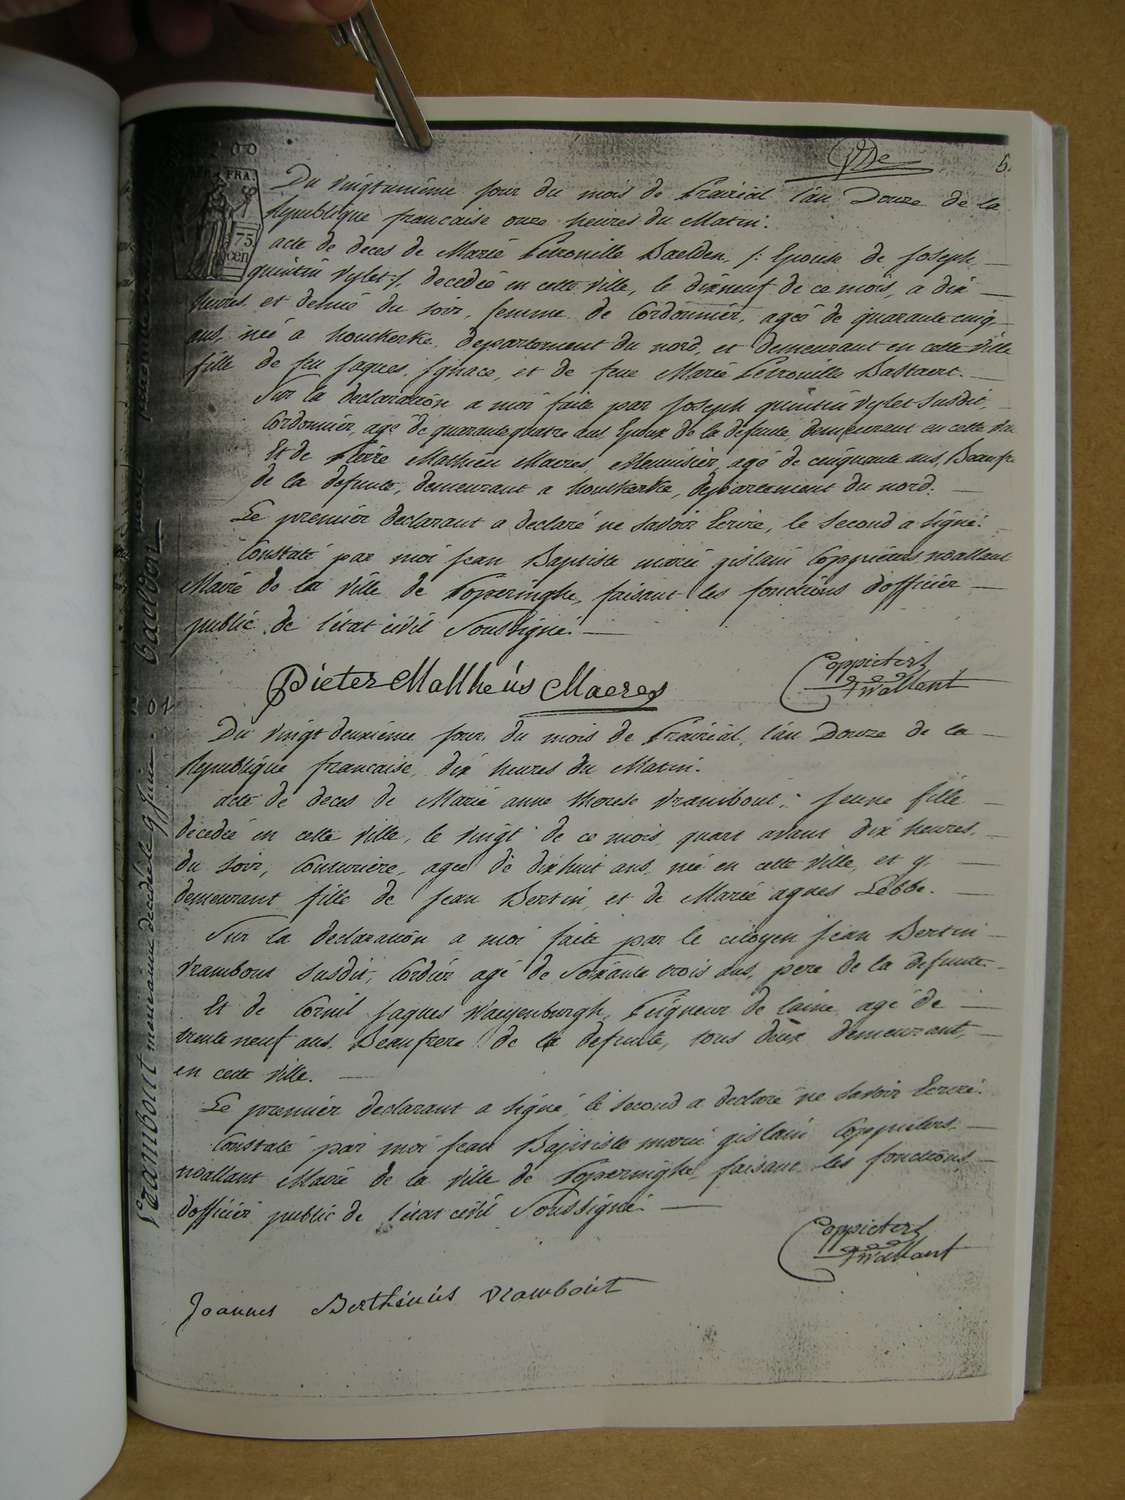 5.
RÉP. FRA.
75
cen
Du vingtunième jour du mois de Prairial l'an Douze de la
Republique francaise onze heures du Matin.
acte de deces de Marie Petronille Baelden, /: Epouse de Joseph
quintin Vylet :/, decedée en cette ville, le dixneuf de ce mois, a dix
heures et demie du soir, femme de Cordonnier, ageé de quarante cinq
ans, neé a houtkerke, departement du nord, et demeurant en cette ville
fille de feu Jaques Ignace, et de feue Marie Petronille Bastaert.
Sur la declaration a moi faite par Joseph quintin Vylet susdit,
Cordonnier, agé de quarante quatre ans Epoux de la defunte, demeurant en cette
Et de Pierre Mathieu Maeres, Menuisier, agé de cinquante ans, Beaufr
de la defunte, demeurant a houtkerke, departement du nord.
Le premier declarant a declaré ne savoir Ecrire, le second a signé.
Constaté par moi Jean Baptiste marie gislain Coppieters wallant
Maire de la ville de Poperinghe, faisant les fonctions d'officier
public de l'etat civil Soussigné.
baelden
Pieter Mattheüs Maeres
Coppieters
Wallant
204
Du vingt deuxième jour du mois de Prairial, l'an Douze de la
Republique francaise, dix heures du Matin.
acte de deces de Marie anne therese Vrambout, jeune fille
decedeé en cette ville, le vingt de ce mois, quart avant dix heures
du soir, Couturière, ageé de dixhuit ans, neé en cette ville, et y
demeurant fille de Jean Bertin, et de Marie agnes Lebbe.
Sur la declaration a moi faite par le citoyen Jean Bertin
Vrambout susdit, Cordier agé de Soixante trois ans, pere de la defunte
Et de Cornil Jaques Waeyenburgh, Peigneur de laine, agé de
trente neuf ans, Beaufrere de la defunte, tous deux demeurant,
en cette ville.
Le premier declarant a signé, le second a declaré ne savoir Ecrire.
Constaté par moi Jean Baptiste marie gislain Coppieters
wallant Maire de la ville de Poperinghe, faisant les fonctions
d'officier public de l'etat civil Soussigné.
Vrambout decedé le 9 Juin
Coppieters
Wallant
Joannes Berthinüs Vramboüt